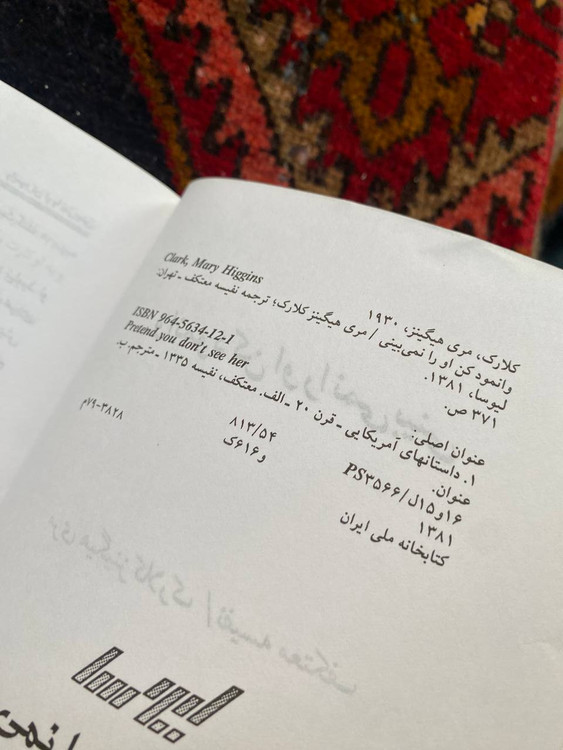 Clark, Mary Higgins
کلارک، مری هیگینز، ۱۹۳۰
وانمود کن او را نمی‌بینی / مری هیگینز کلارک؛ ترجمه نفیسه معتکف ـ تهران:
لیوسا، ۱۳۸۱.
۳۷۱ ص.
ISBN 964-5634-12-1
Pretend you don't see her
عنوان اصلی:
۱. داستانهای آمریکایی ـ قرن ۲۰ ـ الف. معتکف، نفیسه ۱۳۳۵ ـ مترجم. ب.
عنوان.
۸۱۳/۵۴
PS۳۵۶۶/ل۱۵و۱۶
و۶۱۶ک
۱۳۸۱
۷۹-۳۸۲۸م
کتابخانه ملی ایران
لیوسا